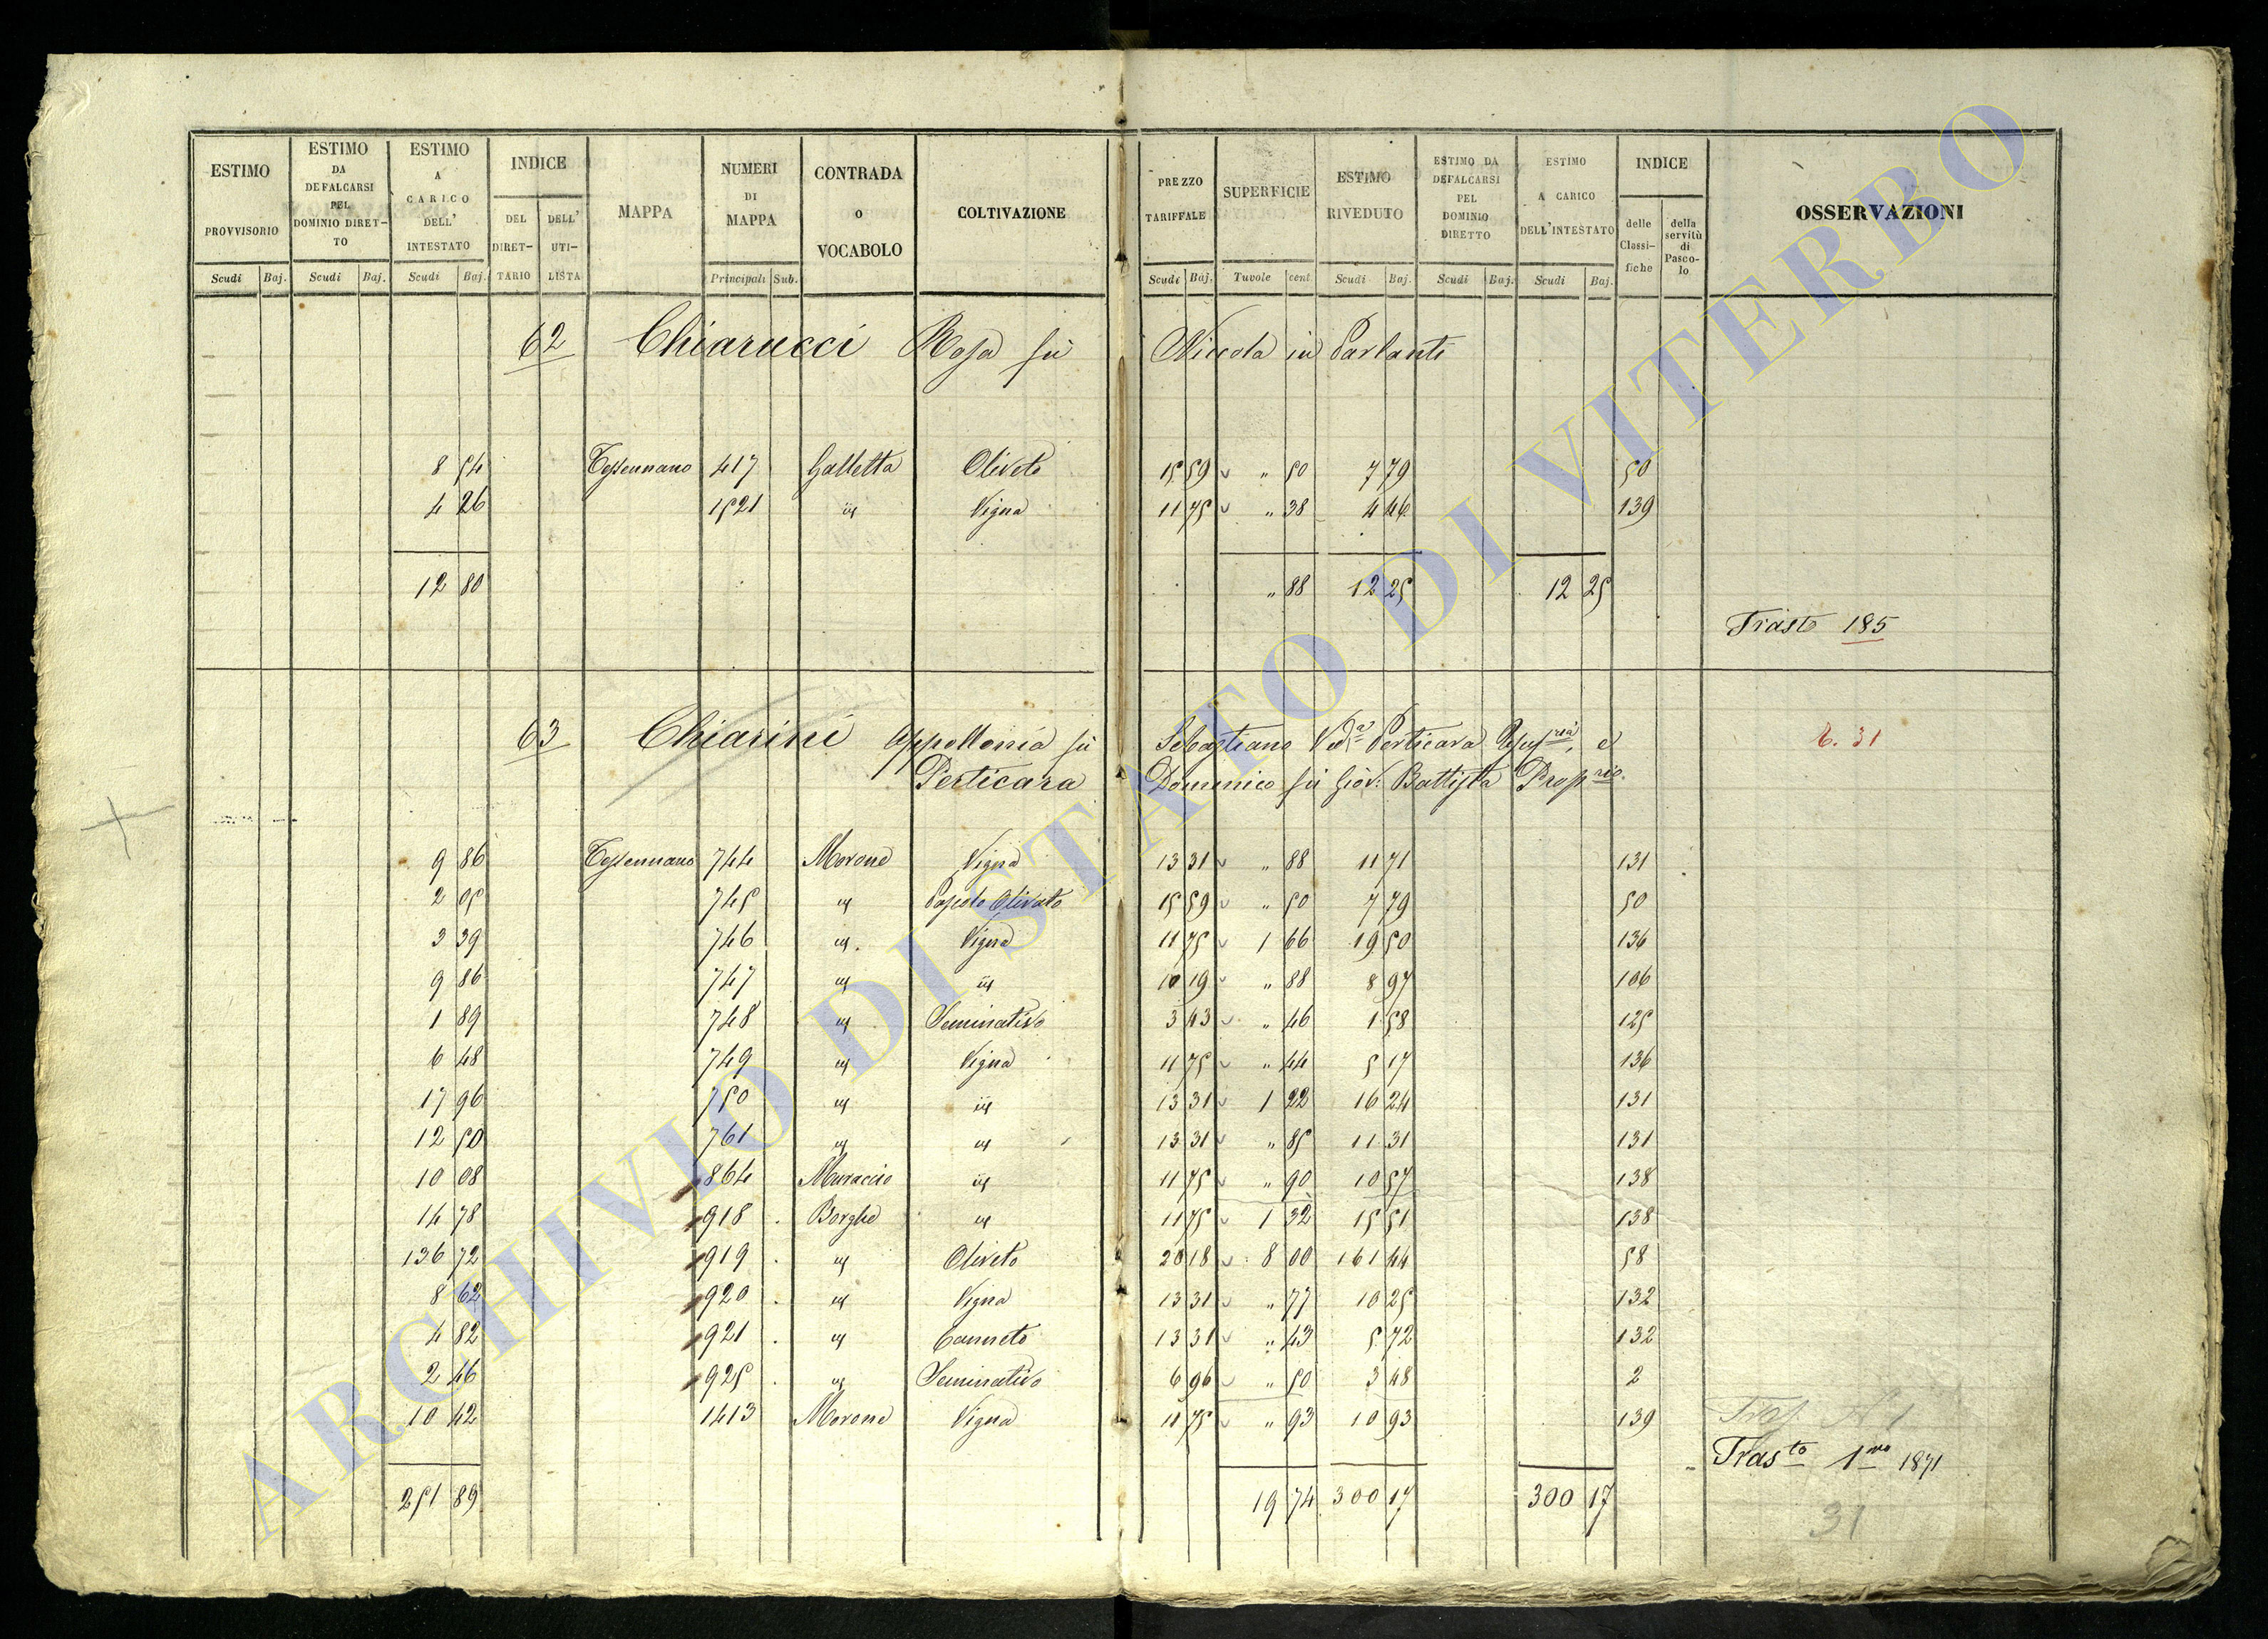 ESTIMO PROVVISORIO | ESTIMO DA DEFALCARSI PEL DOMINIO DIRET-TO | ESTIMO A CARICO DELL' INTESTATO | INDICE | MAPPA | NUMERI DI MAPPA | CONTRADA o VOCABOLO | COLTIVAZIONE | PREZZO TARIFFALE | SUPERFICIE | ESTIMO RIVEDUTO | ESTIMO DA DEFALCARSI PEL DOMINIO DIRETTO | ESTIMO A CARICO DELL'INTESTATO | INDICE | OSSERVAZIONI
DEL DIRET-TARIO | DELL' UTI-LISTA | delle Classi-fiche | della servitù di Pasco-lo
Scudi Baj. | Scudi Baj. | Scudi Baj. | Principali Sub. | Scudi Baj. | Tavole cent | Scudi Baj. | Scudi Baj. | Scudi Baj.
62 Chiarucci Rosa fù Niccola in Parlanti
8 54 Tessennano 417 Galletta Oliveto 15 59 " 50 7 79 50
4 26 1521 id Vigna 11 75 " 38 4 46 139
12 80 " 88 12 25 12 25
Trasto 185
63 Chiarini Appollonia fù Sebastiano Vedª Perticara Usufria, e
Perticara Domenico fù Giov. Battista Proprio.
6. 31
9 86 Tessennano 744 Morone Vigna 13 31 " 88 11 71 131
2 05 745 id Pascolo Olivato 15 59 " 50 7 79 50
3 39 746 id. Vigna 11 75 1 66 19 50 136
9 86 747 id id 10 19 " 88 8 97 106
1 89 748 id Seminativo 3 43 " 46 1 58 125
6 48 749 id Vigna 11 75 " 44 5 17 136
17 96 750 id id 13 31 1 22 16 24 131
12 50 761 id id 13 31 " 85 11 31 131
10 08 864 Muraccio id 11 75 " 90 10 57 138
14 78 918 Borghe id 11 75 1 32 15 51 138
136 72 919 id Oliveto 20 18 8 00 161 44 58
8 62 920 id Vigna 13 31 " 77 10 25 132
4 82 921 id Canneto 13 31 " 43 5 72 132
2 46 925 id Seminativo 6 96 " 50 3 48 2
10 42 1413 Morone Vigna 11 75 " 93 10 93 139
Tras. N 1
Trasto 1mo 1871
251 89 19 74 300 17 300 17
31
ARCHIVIO DI STATO DI VITERBO